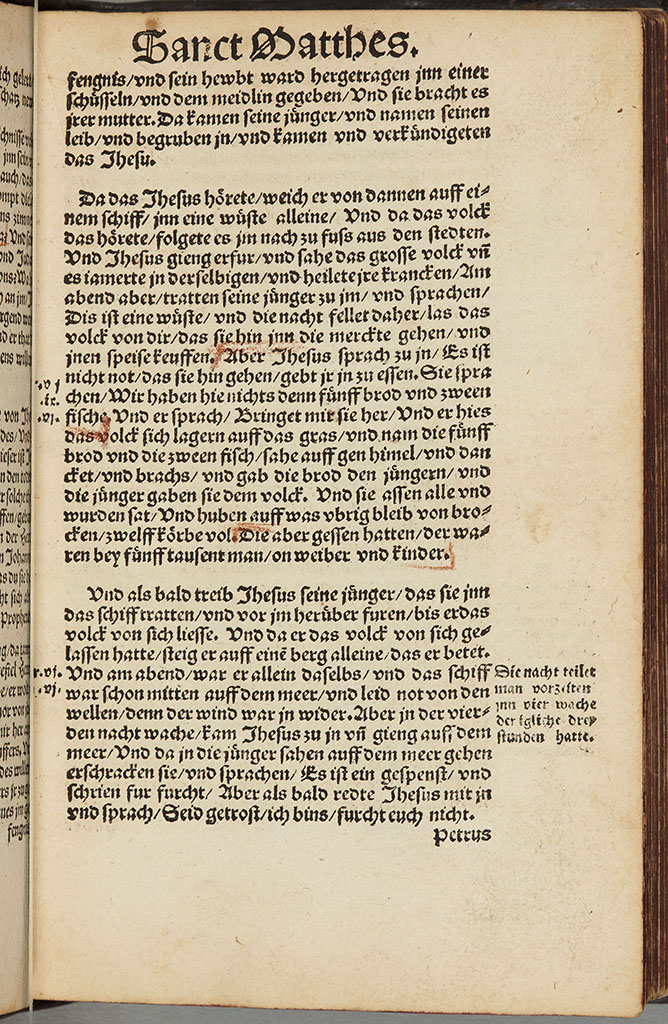 Sanct Matthes.
fengnis/vnd sein hewbt ward hergetragen jnn einer
schüsseln/vnd dem meidlin gegeben/Vnd sie bracht es
jrer mutter. Da kamen seine jünger/vnd namen seinen
leib/vnd begruben jn/vnd kamen vnd verkündigeten
das Jhesu.
Da das Jhesus hörete/weich er von dannen auff ei-
nem schiff/ jnn eine wüste alleine/ Vnd da das volck
das hörete/folgete es jm nach zu fuss aus den stedten.
Vnd Jhesus gieng erfur/vnd sahe das grosse volck vn̄
es iamerte jn derselbigen/vnd heilete jre krancken/Am
abend aber/tratten seine jünger zu jm/ vnd sprachen/
Dis ist eine wüste/ vnd die nacht fellet daher/las das
volck von dir/das sie hin jnn die merckte gehen/vnd
jnen speise keuffen. Aber Jhesus sprach zu jn/ Es ist
nicht not/das sie hin gehen/gebt jr jn zu essen. Sie spra
chen/Wir haben hie nichts denn fünff brod vnd zween
fische. Vnd er sprach/ Bringet mir sie her/Vnd er hies
das volck sich lagern auff das gras/vnd nam die fünff
brod vnd die zween fisch/sahe auff gen himel/vnd dan
cket/vnd brachs/vnd gab die brod den jüngern/vnd
die jünger gaben sie dem volck. Vnd sie assen alle vnd
wurden sat/Vnd huben auff was vbrig bleib von bro-
cken/zwelff körbe vol. Die aber gessen hatten/der wa-
ren bey fünff tausent man/on weiber vnd kinder.
Vnd als bald treib Jhesus seine jünger/das sie jnn
das schiff tratten/vnd vor jm herüber furen/bis er das
volck von sich liesse. Vnd da er das volck von sich ge-
lassen hatte/steig er auff einē berg alleine/das er betet.
Vnd am abend/war er allein daselbs/vnd das schiff
war schon mitten auff dem meer/vnd leid not von den
wellen/denn der wind war jn wider. Aber jn der vier-
den nacht wache/kam Jhesus zu jn vn̄ gieng auff dem
meer/Vnd da jn die jünger sahen auff dem meer gehen
erschracken sie/vnd sprachen/ Es ist ein gespenst/vnd
schrien fur furcht/ Aber als bald redte Jhesus mit jn
vnd sprach/Seid getrost/ich bins/furcht euch nicht.
Petrus
Die nacht teilet
man vorzeiten
jnn vier wache
der igliche drey
stunden hatte.